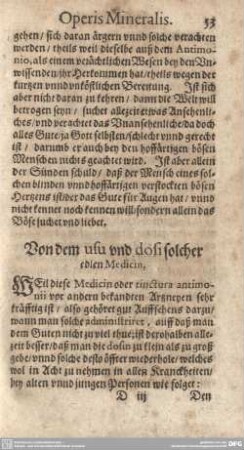 Operis Mineralis. 53
gehen / sich daran ärgern vnnd solche verachten
werden / theils weil dieselbe auß dem Antimo-
nio, als einem verächtlichen Wesen bey den Vn-
wissenden ihr Herkommen hat / theils wegen der
kurtzen vnnd vnköstlichen Bereitung. Ist sich
aber nicht daran zu kehren / dann die Welt will
betrogen seyn / suchet allezeit etwas Ansehnli-
ches / vnd verachtet das Vnansehenliche / da doch
alles Gute ja Gott selbsten / schlecht vnnd gerecht
ist / darumb er auch bey den hoffärtigen bösen
Menschen nichts geachtet wird. Ist aber allein
der Sünden schuld / daß der Mensch eines sol-
chen blinden vnnd hoffärtigen verstockten bösen
Hertzens ist / der das Gute für Augen hat / vnnd
nicht kennet noch kennen will / sondern allein das
Böse suchet vnd liebet.
Von dem usu vnd dosi solcher
edlen Medicin.
WEil diese Medicin oder tinctura antimo-
nii vor andern bekandten Artzneyen sehr
kräfftig ist / also gehöret gut Auffsehens darzu /
wann man solche administriret, auff daß man
den Guten nicht zu viel thue, ist derohalben alle-
zeit besser / daß man die dosin zu klein als zu groß
gebe / vnnd solche desto öffter wiederhole / welches
wol in Acht zu nehmen in allen Kranckheiten /
bey alten vnnd jungen Personen wie folget:
D iij Den